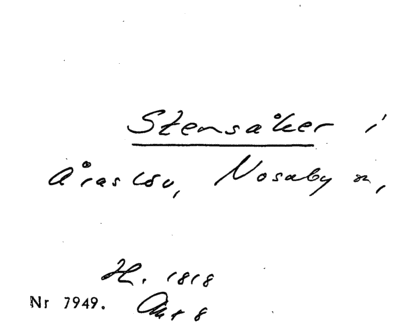 Stensåker i
Åraslöv, Nosaby sn,
H. 1818
Nr 7949. Akt 8